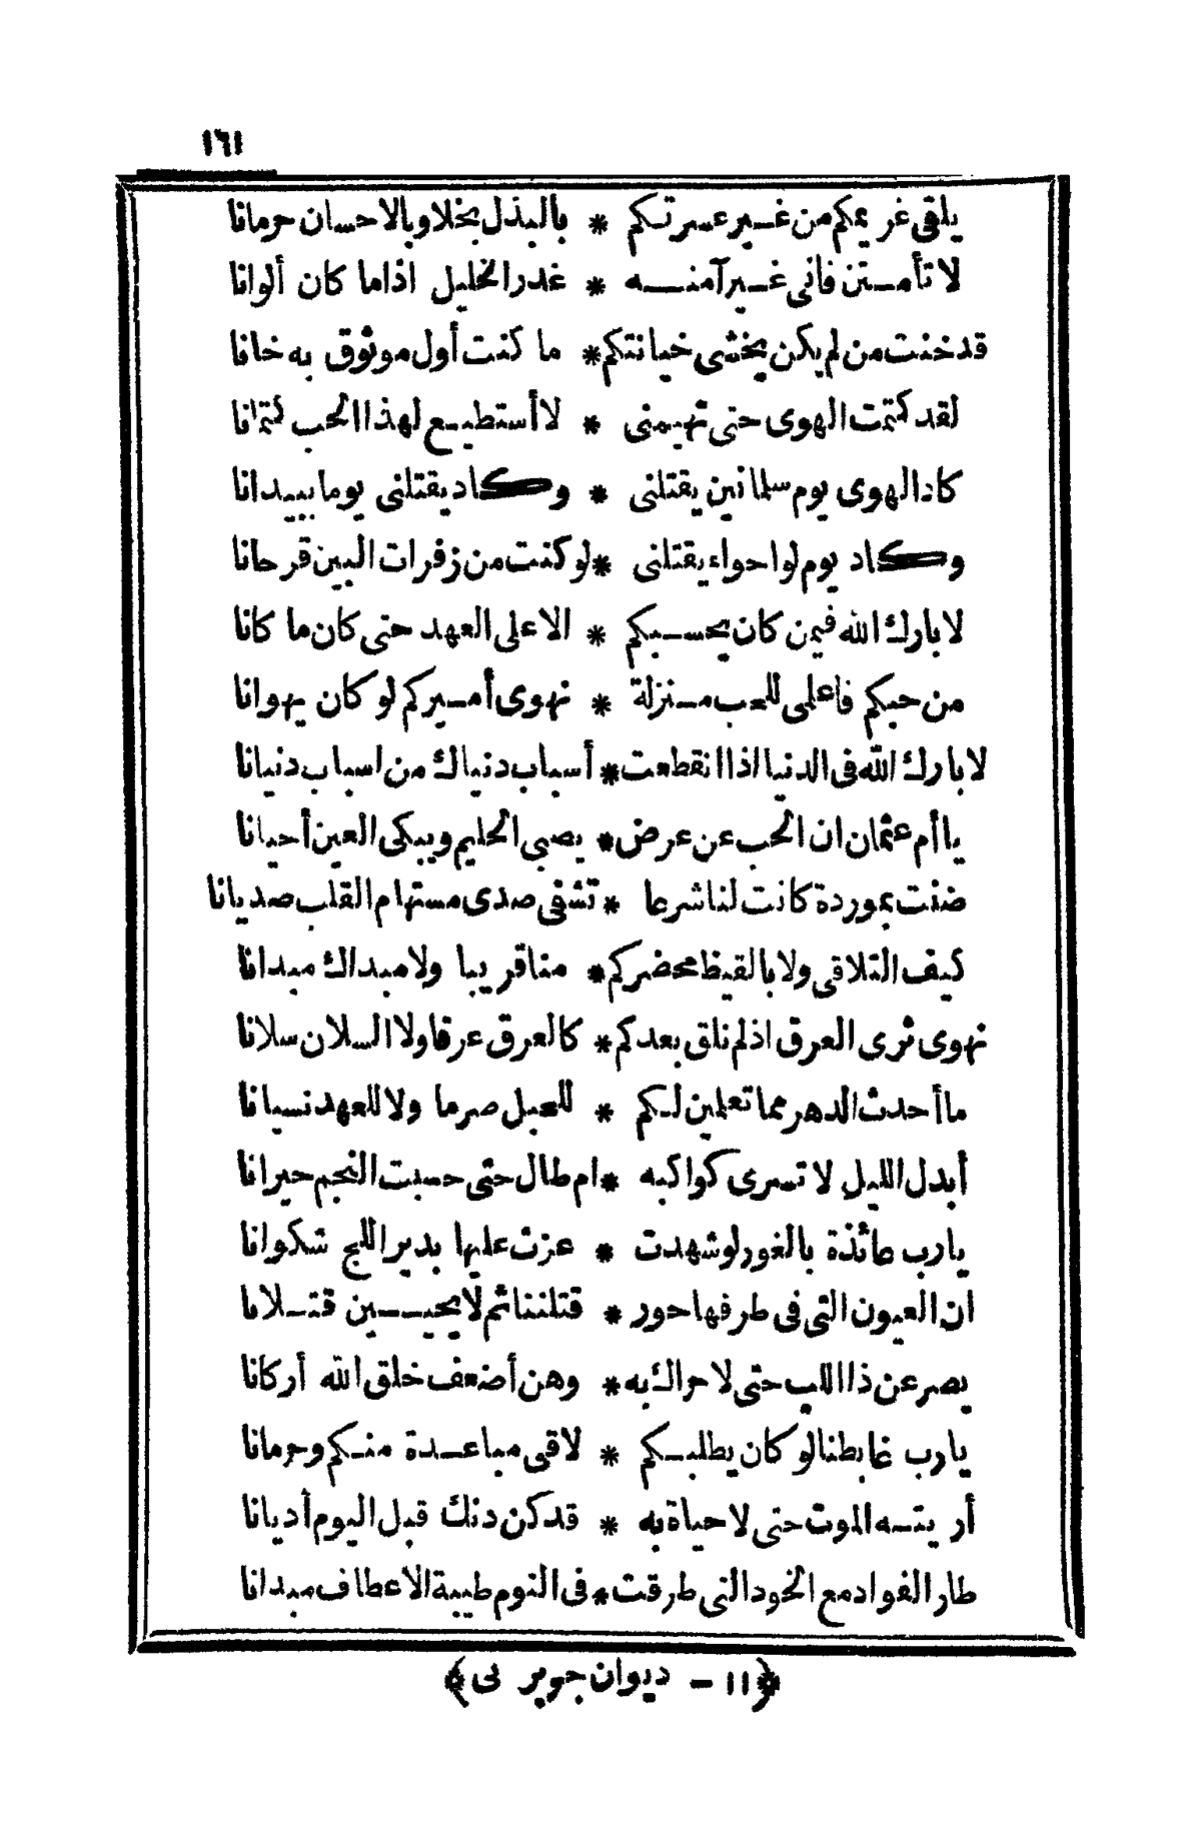 ١٦١
يلقى غريمكم من غير عسرتكم * بالبذل بخلا وبالاحسان حرمانا
لا تأمنن فانى غير آمنه * غدر الخليل اذا ما كان ألوانا
قد خنت من لم يكن يخشى خيانتكم * ما كنت أول موثوق به خانا
لقد كتمت الهوى حتى تهيمنى * لا أستطيع لهذا الحب كتمانا
كاد الهوى يوم سلمانين يقتلنى * وكاد يقتلنى يوما ببيدانا
وكاد يوم لوا حواء يقتلنى * لو كنت من زفرات البين قرحانا
لا بارك الله فيمن كان يحسبكم * الا على العهد حتى كان ما كانا
من حبكم فاعلمى للحب منزلة * نهوى أميركم لو كان يهوانا
لا بارك الله فى الدنيا اذا انقطعت * أسباب دنياك من اسباب دنيانا
يا أم عثمان ان الحب عن عرض * يصبى الحليم ويبكى العين أحيانا
ضنت بموردة كانت لنا شرعا * تشفى صدى مستهام القلب صديانا
كيف التلاقى ولا بالقيظ محضركم * منا قريبا ولا مبداك مبدانا
نهوى ثرى العرق اذ لم نلق بعدكم * كالعرق عرقا ولا السلان سلانا
ما أحدث الدهر مما تعلمين لكم * للحبل صرما ولا للعهد نسيانا
أبدل الليل لا تسرى كواكبه * ام طال حتى حسبت النجم حيرانا
يارب عائذة بالغور لو شهدت * عزت عليها بدير اللج شكوانا
ان العيون التى فى طرفها حور * قتلننا ثم لا يحيين قتلانا
يصر عن ذا اللب حتى لا حراك به * وهن أضعف خلق الله أركانا
يارب غابطنا لو كان يطلبكم * لاقى مباعدة منكم وحرمانا
أرينه الموت حتى لا حياة به * قد كن دنك قبل اليوم أديانا
طار الفواد مع الخود التى طرقت * فى النوم طيبة الاعطاف مبدانا
﴿١١ - ديوان جوير نى﴾